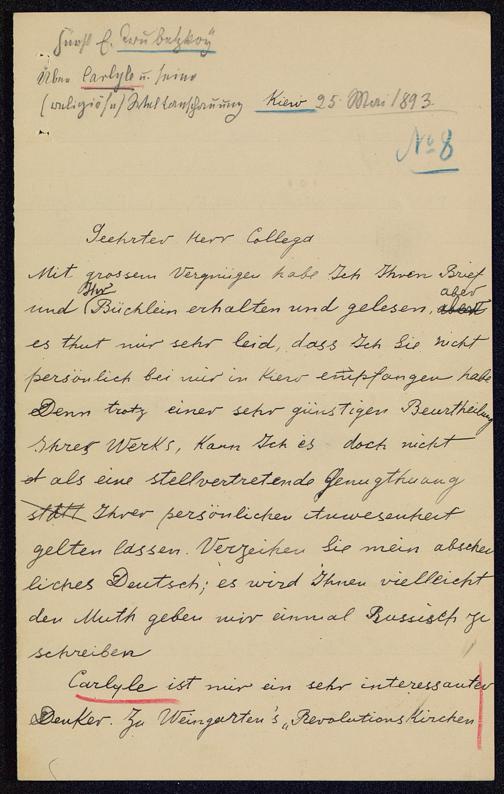 Fürst E. Trubetzkoy
über Carlyle u. seine
(religiöse) Weltanschauung Kiew 25. Mai 1893.
No 8
Geehrter Herr Collega
Mit grossem Vergnügen habe Ich Ihren Brief
und Ihr Büchlein erhalten und gelesen, aber
es thut mir sehr leid, dass Ich Sie nicht
persönlich bei mir in Kiew empfangen habe
Denn trotz einer sehr günstigen Beurtheilung
Ihres Werks, kann Ich es doch nicht
als eine stellvertretende Genugthuung
statt Ihrer persönlichen Anwesenheit
gelten lassen. Verzeihen Sie mein abscheu
liches Deutsch; es wird Ihnen vielleicht
den Muth geben mir einmal Russisch zu
schreiben
Carlyle ist mir ein sehr interessanter
Denker. Zu Weingarten's „Revolutions Kirchen